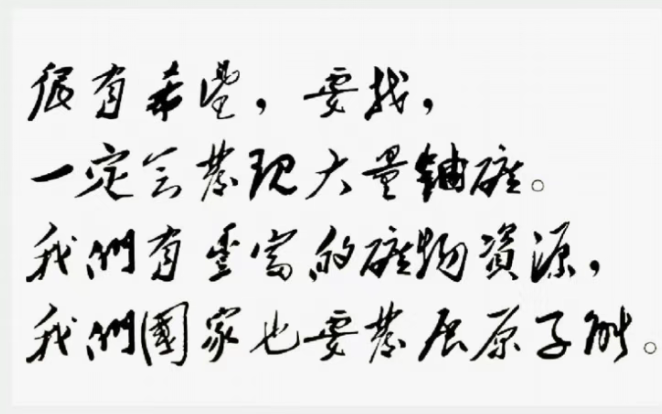 很有希望，要找，
一定会發现大量鈾矿。
我們有豊富的矿物資源，
我們國家也要發展原子能。